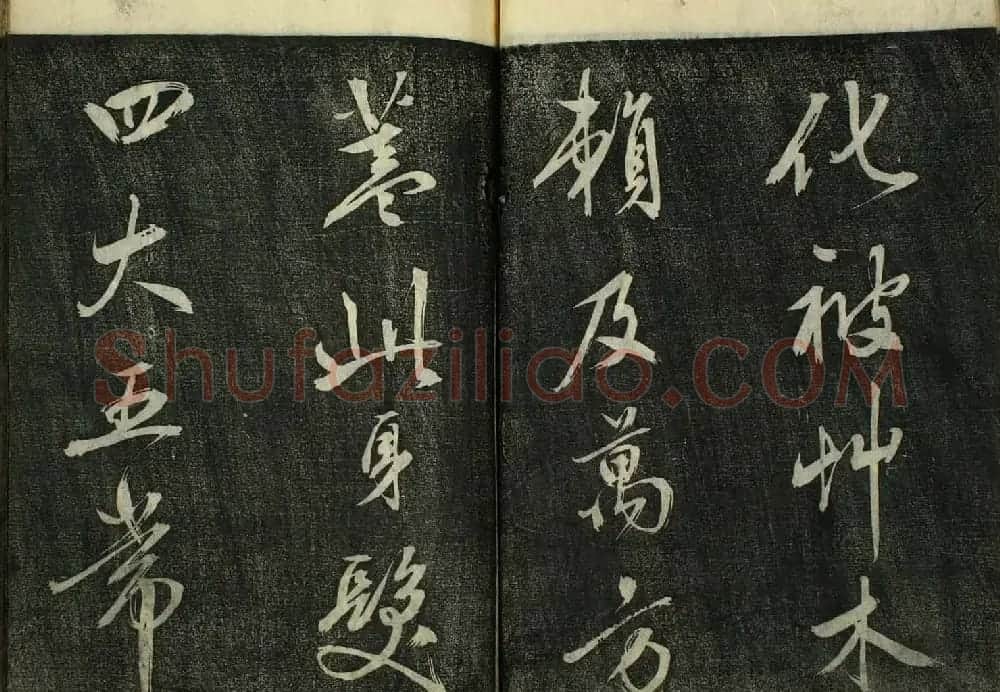 化被艸木
賴及萬方
蓋此身髮
四大五常
Shufaziliao.COM